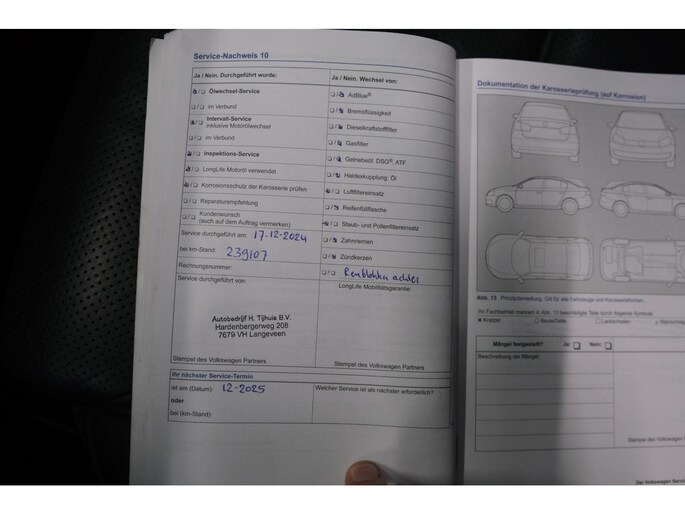 Service-Nachweis 10
Ja / Nein. Durchgeführt wurde:
Ölwechsel-Service
im Verbund
Intervall-Service
inklusive Motorölwechsel
im Verbund
Inspektions-Service
LongLife Motoröl verwendet
Korrosionsschutz der Karosserie prüfen
Reparaturempfehlung
Kundenwunsch
(auch auf dem Auftrag vermerken)
Service durchgeführt am: 17-12-2024
bei km-Stand: 239107
Rechnungsnummer:
Service durchgeführt von:
Autobedrijf H. Tijhuis B.V.
Hardenbergerweg 208
7679 VH Langeveen
Stempel des Volkswagen Partners
Ihr nächster Service-Termin
ist am (Datum): 12-2025
oder
bei (km-Stand):
Ja / Nein. Wechsel von:
AdBlue®
Bremsflüssigkeit
Dieselkraftstofffilter
Gasfilter
Getriebeöl: DSG®, ATF
Haldexkupplung: Öl
Luftfiltereinsatz
Reifenfüllflasche
Staub- und Pollenfiltereinsatz
Zahnriemen
Zündkerzen
Remblokken achter
LongLife Mobilitätsgarantie:
Stempel des Volkswagen Partners
Welcher Service ist als nächster erforderlich?
Dokumentation der Karosserieprüfung (auf Korrosion)
Abb. 13 Prinzipdarstellung: Gilt für alle Fahrzeuge und Karosserieformen.
Ihr Fachbetrieb markiert in Abb. 13 beschädigte Teile durch folgende Symbole:
Kratzer
Beule/Delle
Lackschaden
Mängel festgestellt? Ja: Nein:
Beschreibung der Mängel:
Stempel des Volkswagen
Der Volkswagen Service